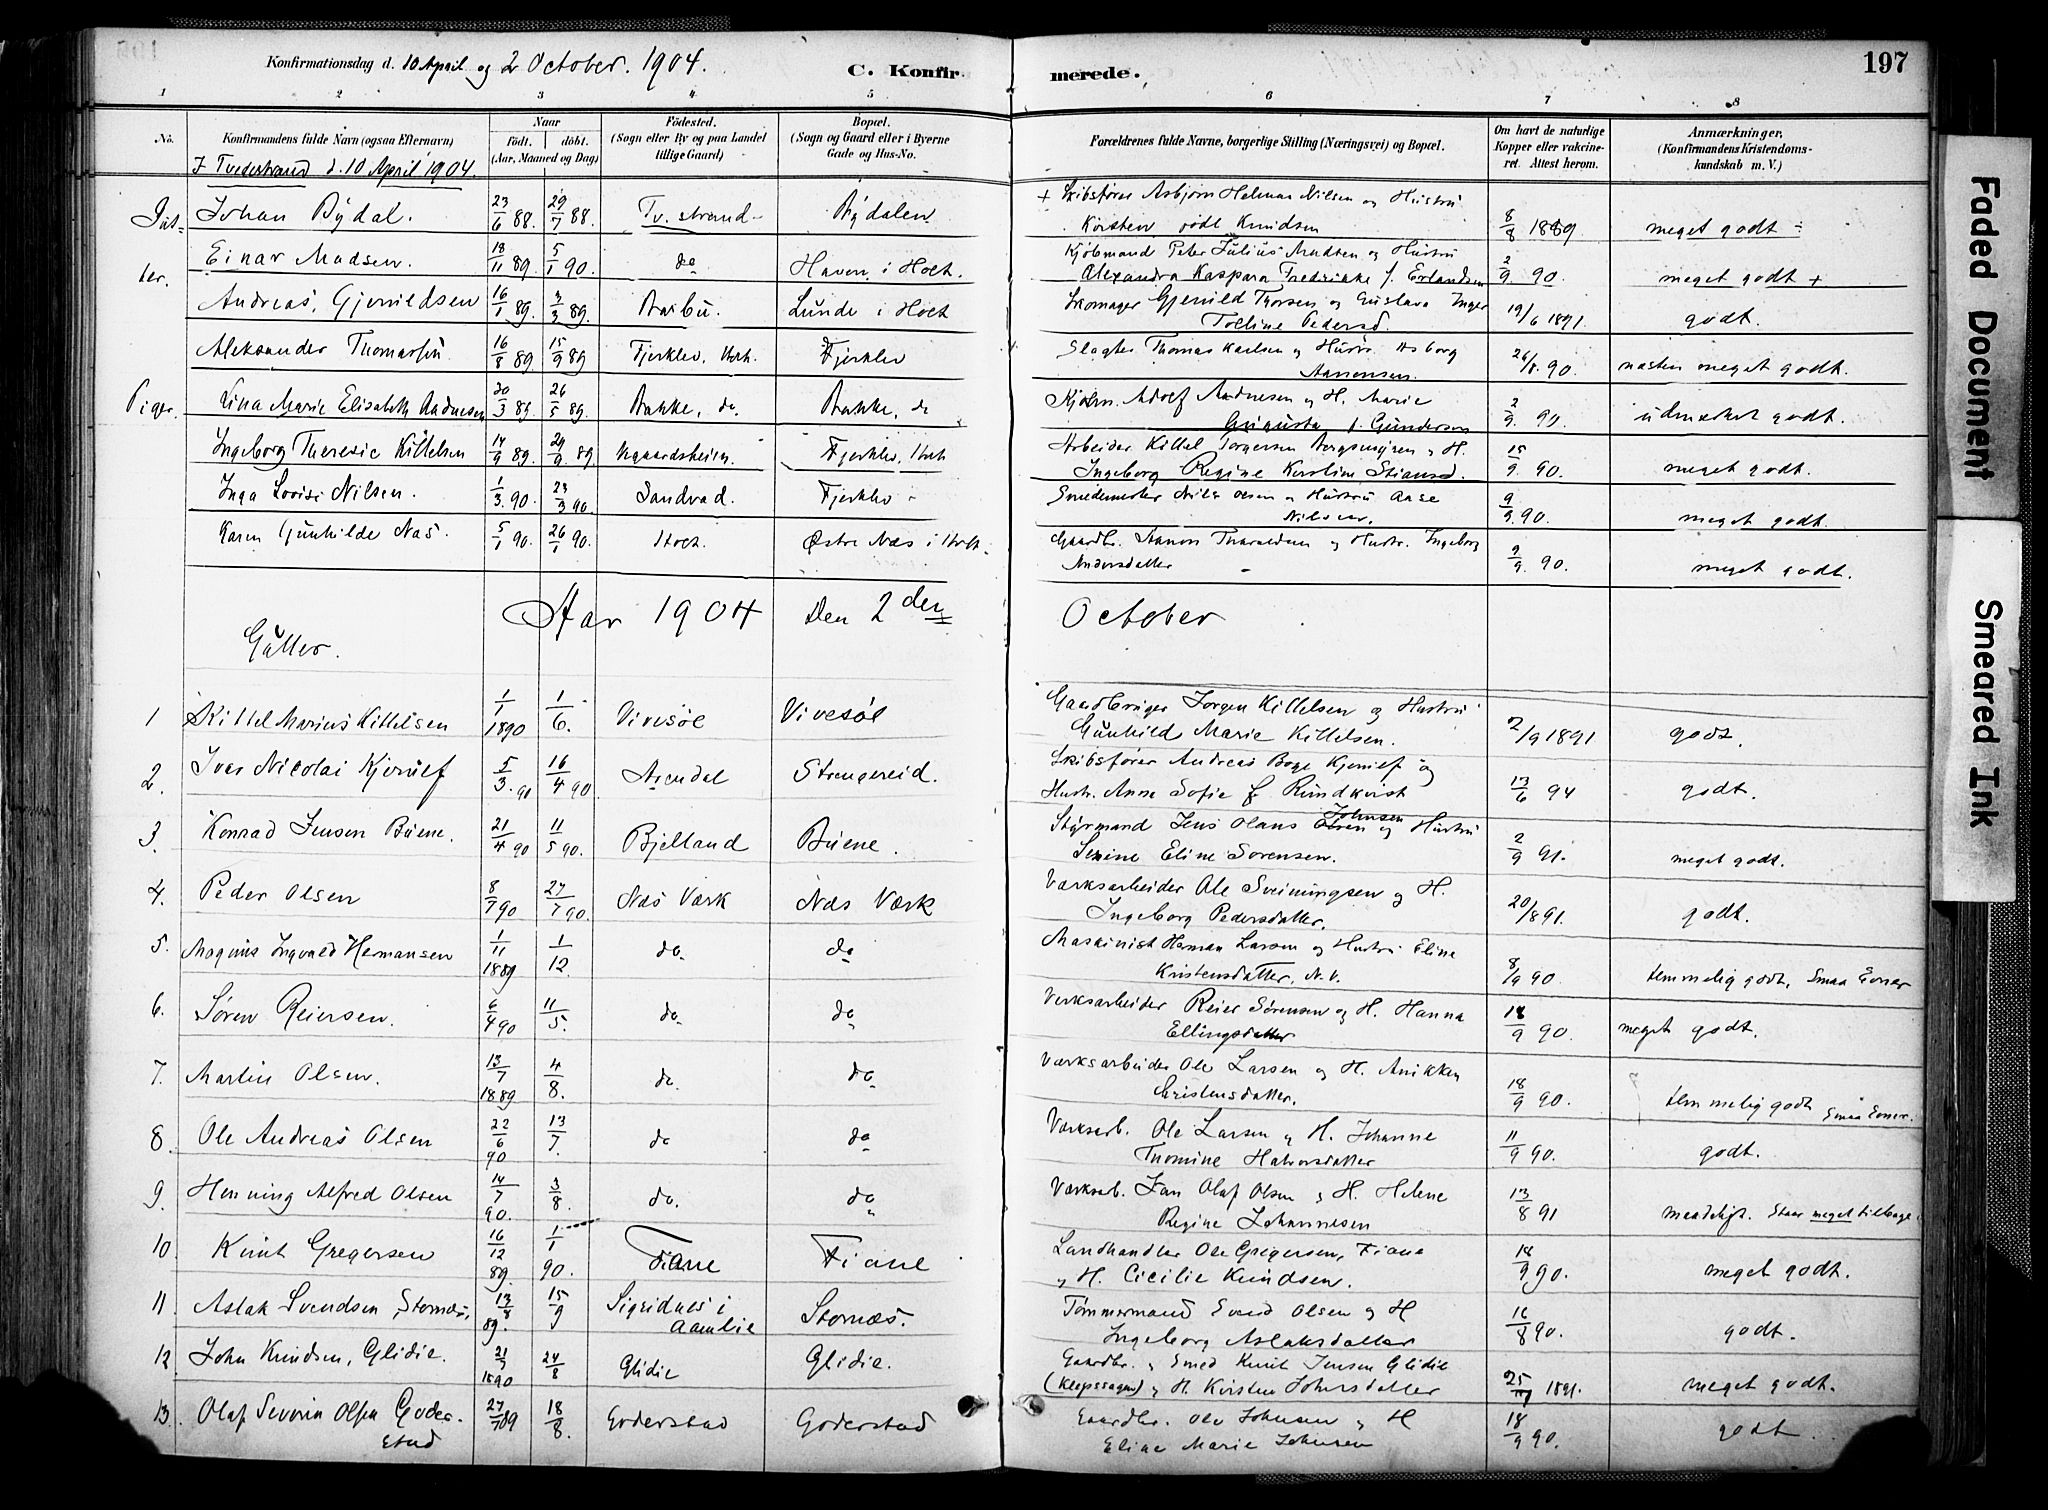 Konfirmationsdag d. 10 April og 2 October. 1904.
C. Konfirmerede.
197
1 2 3 4 5 6 7 8
No.
Konfirmandens fulde Navn (ogsaa Efternavn)
Naar
født. døbt.
(Aar, Maaned og Dag)
Fødested.
(Sogn eller By og paa Landet
tillige Gaard)
Bopæl.
(Sogn og Gaard eller i Byerne
Gade og Hus-No.
Forældrenes fulde Navne, borgerlige Stilling (Næringsvei) og Bopæl.
Om havt de naturlige
Kopper eller vakcine-
ret. Attest herom.
Anmærkninger,
(Konfirmandens Kristendoms-
kundskab m. V.)
I Tvedestrand d. 10 April 1904.
Johan Bydal. 23/6 88. 29/7 88. Tv. strand Bydalen + Skibsfører Asbjørn Nilsen og Hustru
Kirsten født Knudsen 8/8 1889 meget godt
Einar Madsen. 18/11 89. 5/1 90. do Haven i Holt. Kjøbmand Peter Julius Madsen og Hustru
Alexandra Kaspara Fredrikke f. Erlandsen 2/9. 90. meget godt +
Andreas Gjerulldsen 16/1 89. 3/3 89. Barbu. Lunde i Holt Skomager Thorsen og Gustava Inger
Toline Pedersd. 19/6 1891. godt.
Aleksander Thomassen. 16/8 89. 15/9 89 Fjerklev, Holt. Fjerklev Slagter Thomas Karlsen og Hustru Asborg
Aanonsen. 26/8. 90. næsten meget godt.
Piger. Lina Marie Elisabeth Andresen 20/3 89. 26/5 89. Bakke, do. Bakke, do Kjøbm. Adolf Andresen og H. Marie
Augusta f. Gunderson 2/9. 90. udmerket godt.
Ingeborg Theresie Kittelsen 14/9 89. 29/9. 89. Vegaardsheien. Fjerklev, Holt Arbeider Kittel Torgersen og H.
Ingeborg Regine Kirstine Stiansd. 15/9. 90. meget godt.
Inga Lovise Nilsen. 1/3. 90. 23/3 90. Sandvad. Fjerklev Smedemester Nils Olsen og Hustru Aase
Nilsen. 9/9. 90. meget godt.
Karen Gunhilde Næs. 5/1 90. 26/1 90. Holt. Østre Næs i Holt. Gaardbr. Aanon Tharaldsen og Hustr. Ingeborg
Andersdatter 9/9. 90. meget godt.
Aar 1904 Den 2den October
Gutter.
1 Kittel Marius Kittelsen 1/1 1890 1/6. Vivesøl Vivesøl Gaardbruger Jørgen Kittelsen og Hustru
Gunhild Marie Kittelsen. 2/9 1891 godt.
2. Ivar Nicolai Kjerulf 5/3. 90 16/4 90. Arendal Strengereid. Skibsfører Andreas Boye Kjerulf og
Hustr. Anna Sofie f. Rundkvist 13/6 94 godt.
3. Konrad Jensen Buene. 21/4 90 11/5 90. Bjelland Buene. Styrmand Jens Olaus Johnsen og Hustru
Serine Eline Sorensen. 2/9 91. meget godt.
4. Peder Olsen 8/7 90 27/7 90. Næs Værk Næs Værk Værksarbeider Ole Sveinungsen og H.
Ingeborg Pedersdatter. 20/8 91. godt.
5. Magnus Ingvald Hermansen 1/11 1889 1/12 do. do Maskinist Herman Larsen og Hustru Eline
Kristensdatter. N. V. 8/9 90 temmelig godt, Smaa Evner
6. Søren Reiersen. 6/4 90 11/5. do. do Verksarbeider Reier Sørensen og H. Hanna
Ellingsdatter 18/9 90. meget godt.
7. Martin Olsen. 13/7 1889 4/8. do. do Værksarbeider Ole Larsen og H. Anikken
Kristensdatter. 18/9 90. temmelig godt Smaa Evner.
8. Ole Andreas Olsen 22/6 90 13/7. do do Værksarb. Ole Larsen og H. Johanne
Thomine Halvorsdatter 11/9 90. godt.
9. Henning Alfred Olsen 14/7 90. 3/8. do. do Værksarb. Jan Olaf Olsen og H. Helene
Regine Johannesen 13/8 91 maadeligt. Staar meget tilbage
10. Knut Gregersen 16/12 89. 1/1 90. Fiane Fiane Landhandler Ole Gregersen, Fiane
og H. Cicilie Knudsen. 18/9 90. meget godt.
11. Aslak Svendsen Stornæs, 13/8 89. 15/9 Sigridnes i
Aamlie Stornæs. Tømmermand Svend Olsen og H
Ingeborg Aslaksdatter 16/8 90. godt.
12 John Knudsen, Glidie. 21/7 1890 24/8 Glidie Glidie. Gaardbr. og Smed Knut Jensen Glidie
(Klepssagen) og H. Kirsten Johnsdatter 25/ 1891. meget godt.
13. Olaf Severin Olsen Goderstad 27/7 89 18/8. Goderstad Goderstad Gaardbr. Ole Johnsen og H
Eline Marie Johnsen 18/9 90. godt.
Faded Document
Smeared Ink